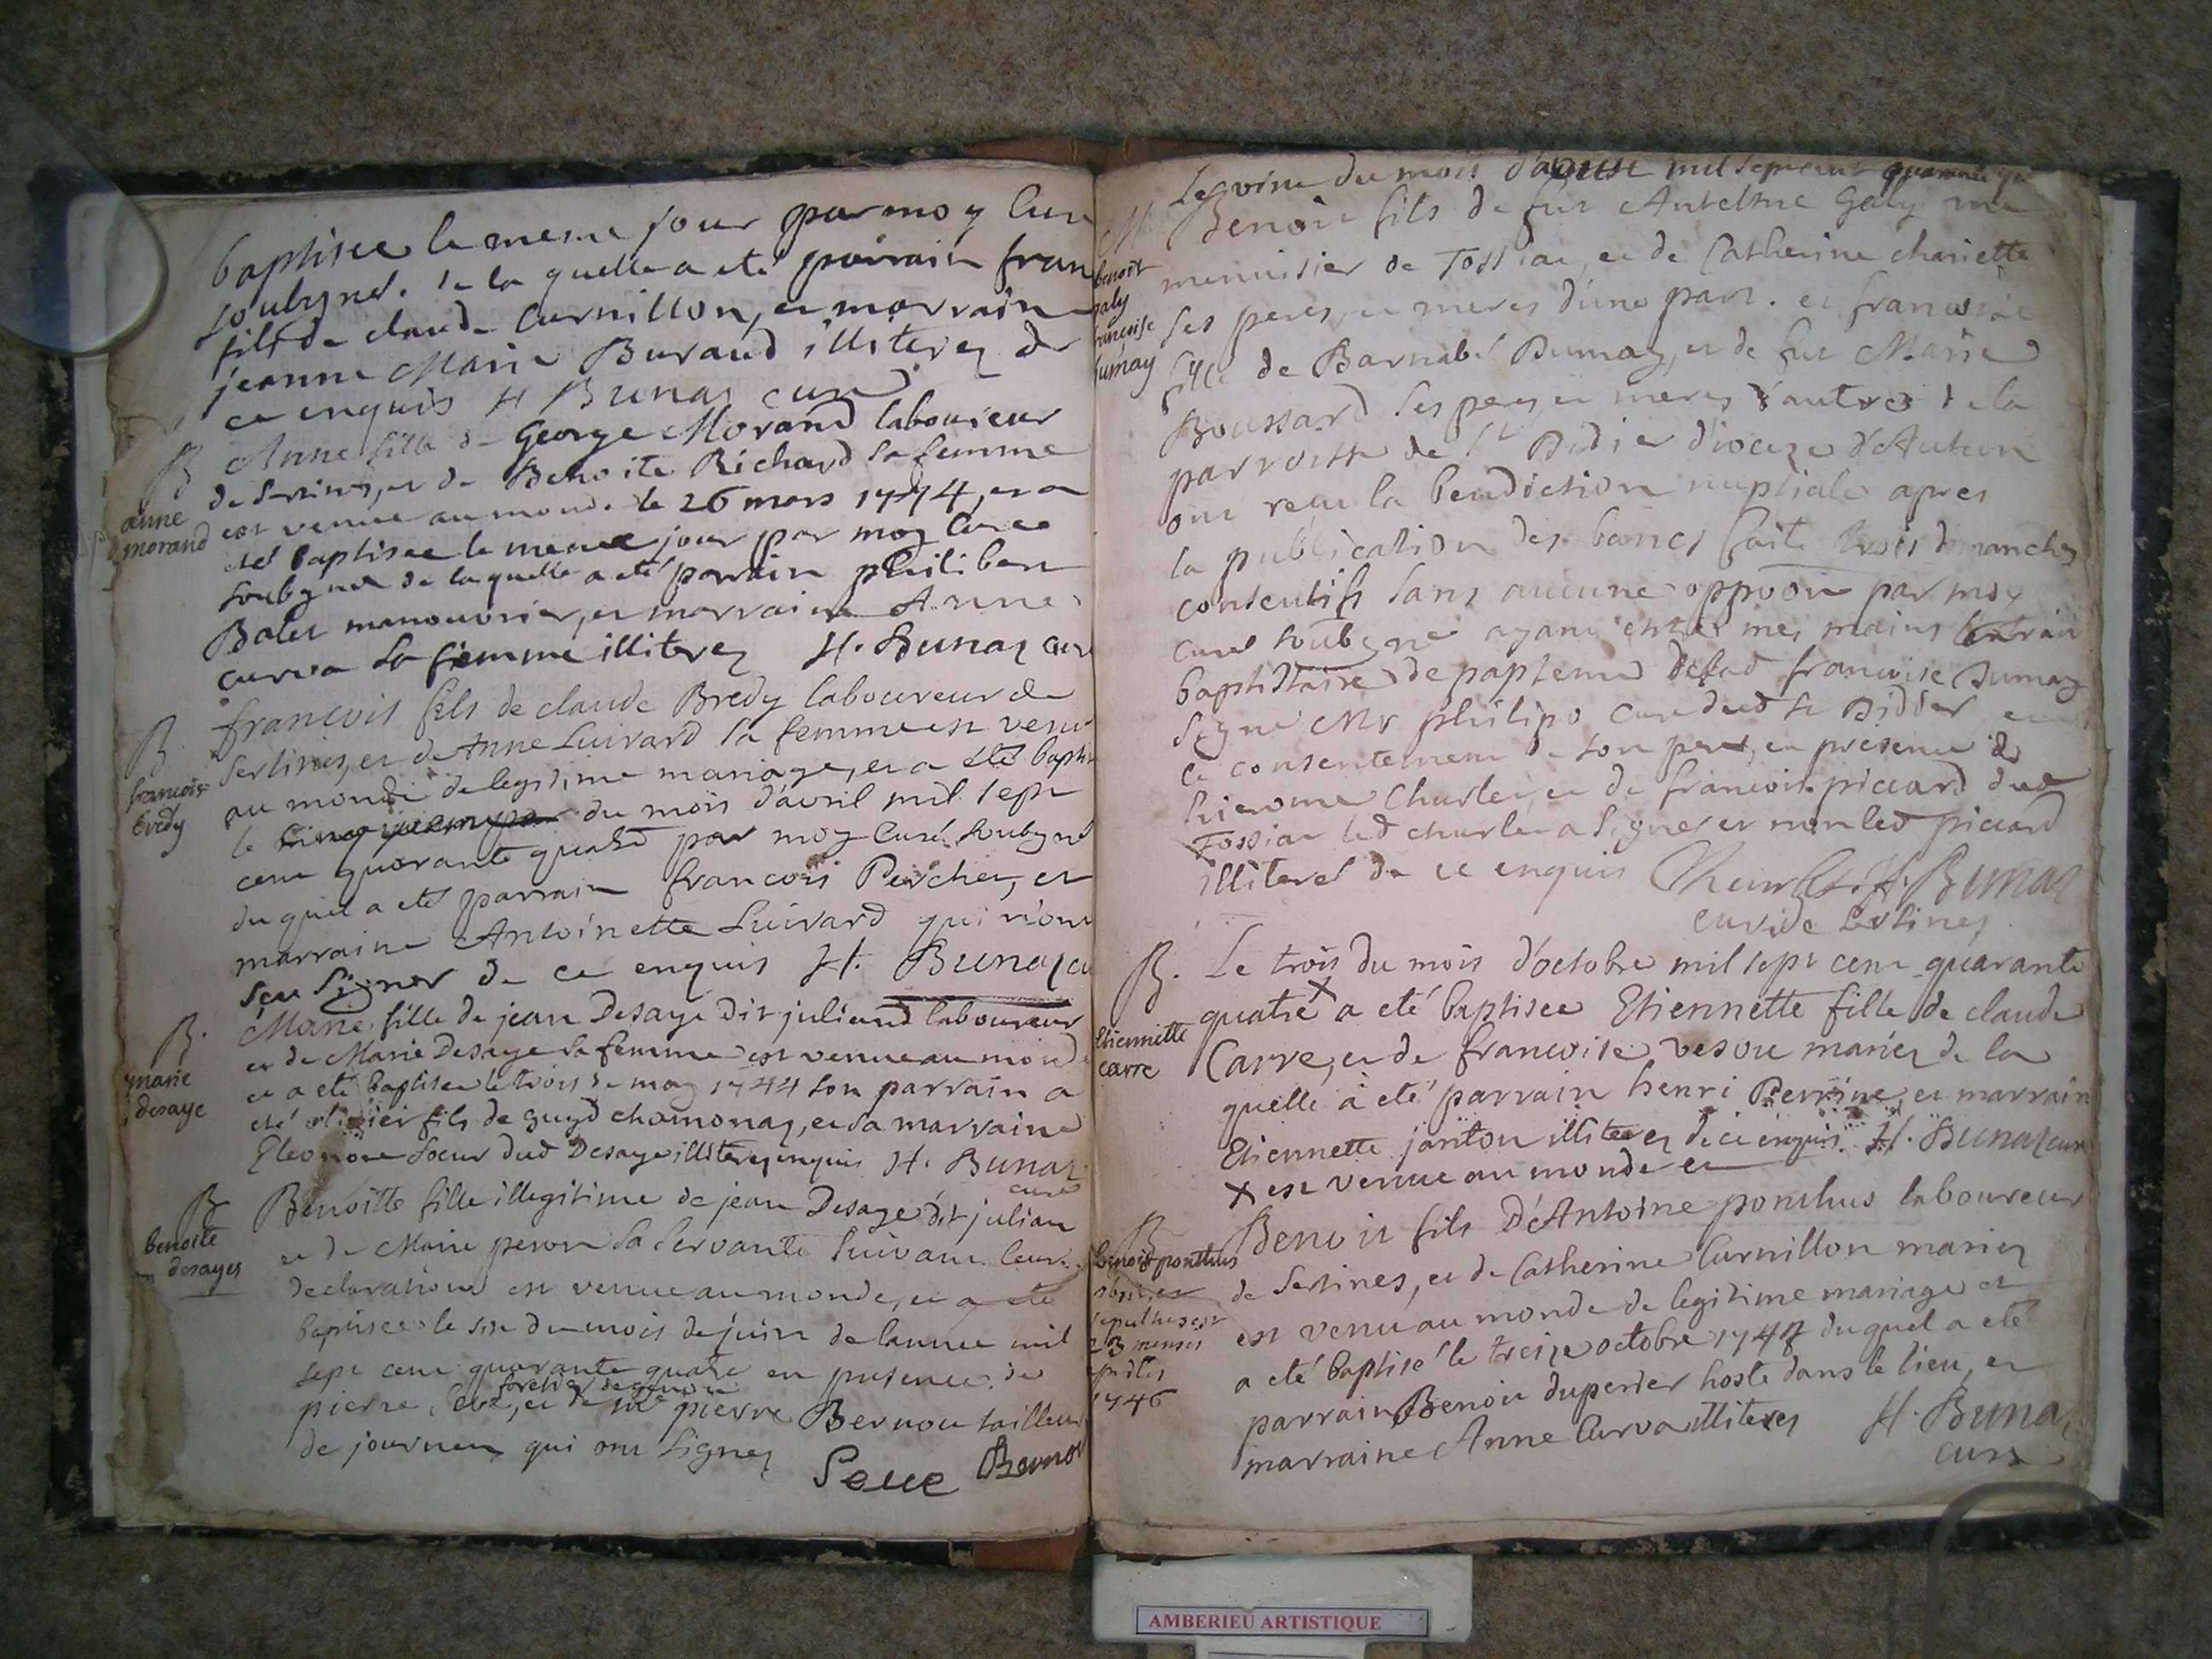 baptisee le mesme jour par moy Cure
soubzne. de la quelle a eté parrain fran
fils de claude Curnillon, et marraine
jeanne Marie Buraud illiterez de
ce enquis H Bunaz curé
B
anne
morand
Anne fille de George Morand laboureur
de Sertines, et de Benoite Richard sa femme
est venue au monde le 26 mars 1744, et a
eté baptisee le meme jour par moy Curee
soubzne de la quelle a eté parrain philibert
Bolet manouvrier, et marraine Anne
curva sa femme illiterez H. Bunaz cur
B
francois
bredy
francois fils de claude Bredy laboureur de
Sertines, et de Anne Luivard sa femme est venu
au monde de legitime mariage, et a eté baptis
le du mois d'avril mil sept
cent quarante quatre par moy Curé soubzné
du quel a eté parrain francois Percher, et
marraine Antoinette Luivard qui n'ont
sçu signer de ce enquis H. Bunaz cu
B.
marie
desaye
Marie fille de jean Desaye dit juliand laboureur
et de Marie Desaye sa femme est venue au monde
et a eté baptisee le trois de may 1744 son parrain a
eté olivier fils de guyd chamonaz, et sa marraine
Eleonore soeur dud Desaye illiterez enquis H. Bunaz
curé
B
benoite
desayes
Benoitte fille illegitime de jean Desaye dit julian
et de Marie peron sa servante suivant leur
declaration est venue au monde, et a eté
baptisee le six du mois de juin de lannee mil
sept cent quarante quatre en presence de
pierre Seve, et de me pierre Bernou tailleur
de journeez qui ont signez
Seve Bernou
Le du mois d'aoust mil sept cent quarante qu
M
benoit
galy
francoise
dumay
Benoit fils de fut Antelme Galy me
menuisier de Tossiac, et de Catherine chariette
ses peres, et meres d'une part. et francoise
fille de Barnabé Dumay, et de fut Marie
Boussard ses peres et meres d'autres de la
parroisse de St Didier d'ioceze d'Autun
ont reçu la benediction nuptiale apres
la publication des bancs faite trois dimanches
consecutifs sans aucune oppoon par moy
curé soubzgné ayant entre mes mains lextrait
baptistaire de papteme delad francoise Dumay
signé Mr philipo curé dud St Didier et
le consentement de son pere, en presence de
hierome Charles, et de francois piccard dud
Tossiac led charles a signez et non led piccard
illiteré de ce enquis Charles. H. Bunaz
curé de Sertines
B.
Etiennette
carre
Le trois du mois d'octobre mil sept cent quarante
quatre x a eté baptisee Etiennette fille de claude
Carre, et de francoise vesou mariez de la
quelle a eté parrain henri Perrine, et marraine
Etiennette janton illiterez de ce enquis. H. Bunaz cure
x est venue au monde et
B
benoit ponthus
obiit, et
sepultus est
23 mensis
1746
Benoit fils D'Antoine ponthus laboureur
de Sertines, et de Catherine Curnillon mariez
est venu au monde de legitime mariage et
a eté baptisé le treize octobre 1744 du quel a eté
parrain Benoit duperier hoste dans le lieu, et
marraine Anne Curva illiterez H. Bunaz
curé
AMBERIEU ARTISTIQUE